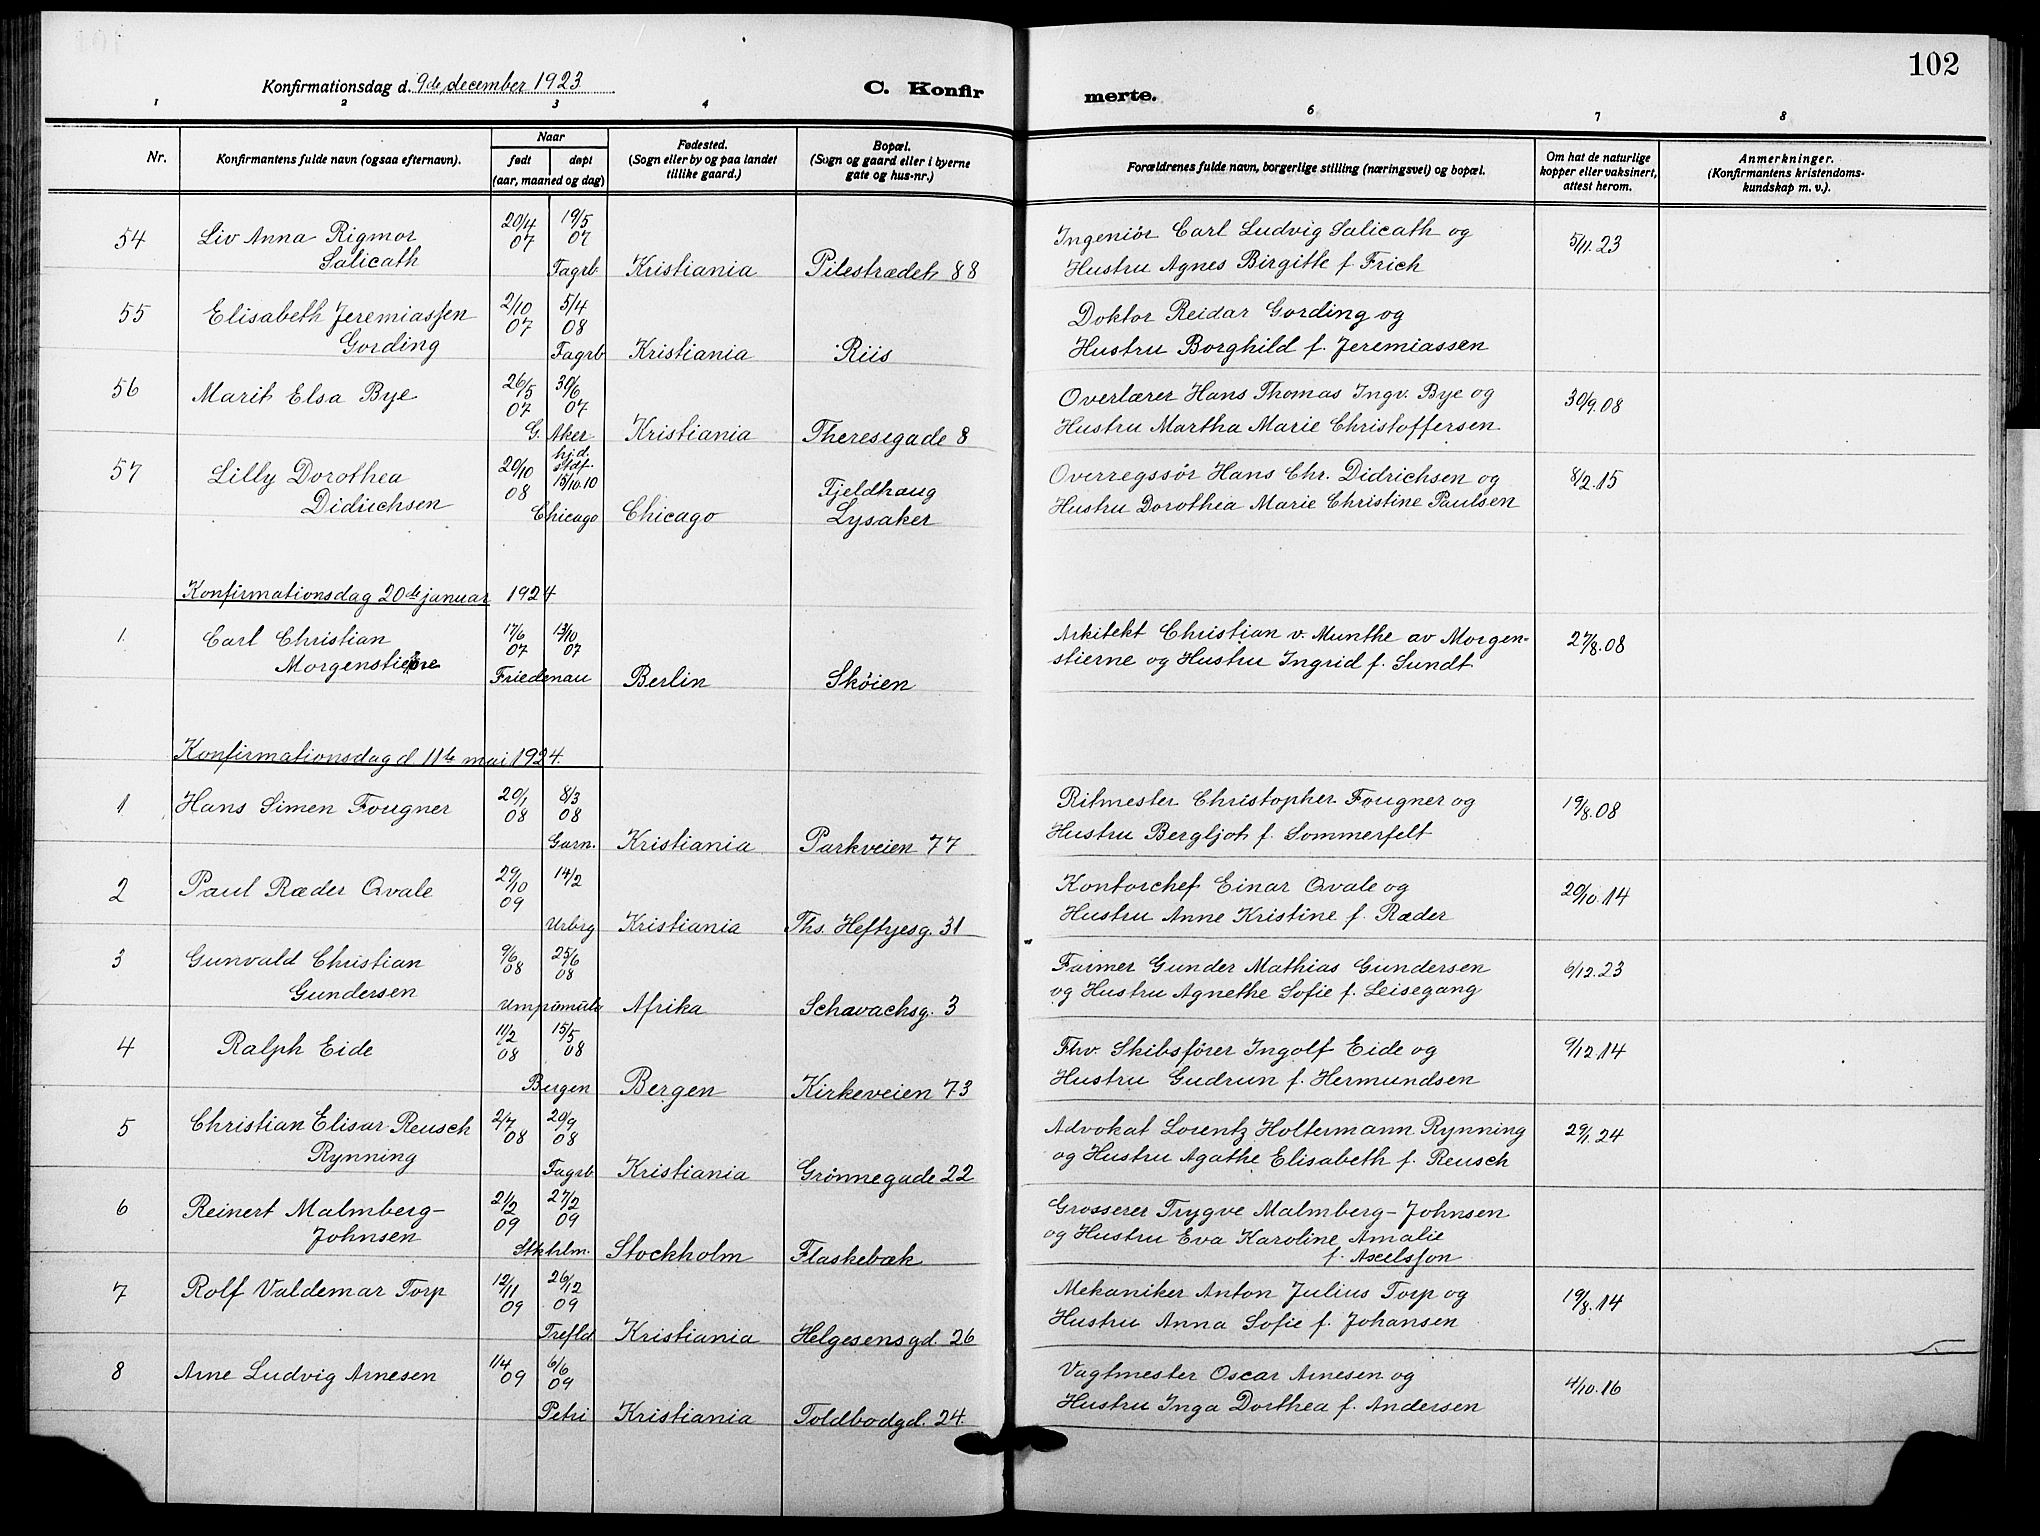 102
Konfirmationsdag d. 9de december 1923
C. Konfir
merte.
1 2 3 4 6 7 8
Nr.
Konfirmantens fulde navn (ogsaa efternavn).
Naar
født døpt
(aar, maaned og dag)
Fødested.
(Sogn eller by og paa landet
tillike gaard.)
Bopæl.
(Sogn og gaard eller i byerne
gate og hus-nr.)
Forældrenes fulde navn, borgerlige stilling (næringsvei) og bopæl.
Om hat de naturlige
kopper eller vaksinert,
attest herom.
Anmerkninger.
(Konfirmantens kristendoms-
kundskap m. v.).
54 Liv Anna Rigmor 20/4 07 19/5 07 Ingeniør Carl Ludvig Salicath og 5/11.23
Salicath Fagrb Kristiania Pilestrædet 88 Hustru Agnes Birgitte f Frich
55 Elisabeth Jeremiassen 2/10 07 5/4 08 Doktor Reidar Gording og
Gording Fagrb Kristiania Riis Hustru Borghild f. Jeremiassen
56 Marit Elsa Bye 26/5 07 30/6 07 Overlærer Hans Thomas Ingv. Bye og 30/9.08
G. Aker Kristiania Theresegade 8 Hustru Martha Marie Christoffersen
57 Lilly Dorothea 20/10 08 hjd. stdf. 15/10.10 Fjeldhaug Overregssør Hans Chr. Didrichsen og 8/2.15
Didrichsen Chicago Chicago Lysaker Hustru Dorothea Marie Christine Paulsen
Konfirmationsdag 20de januar 1924
1. Carl Christian 17/6 07 13/10 07 Arkitekt Christian v. Munthe av Morgen- 27/8.08
Morgenstierne Friedenau Berlin Skøien stierne og Hustru Ingrid f. Sundt
Konfirmationsdag d 11te mai 1924.
1 Hans Simen Fougner 20/1 08 8/3 08 Ritmester Christopher Fougner og 19/8.08
Garn. Kristiania Parkveien 77 Hustru Bergljot f. Sommerfelt
2 Paul Ræder Qvale 29/10 09 14/2 Kontorchef Einar Qvale og 20/10.14
Urbrg Kristiania Ths. Heftyesg. 31 Hustru Anne Kristine f. Ræder
3 Gunvald Christian 9/6 08 25/6 08 Farmer Gunder Mathias Gundersen 6/12.23
Gundersen Afrika Schavachsg. 3 og Hustru Agnethe Sofie f. Leisegang
4 Ralph Eide 11/2 08 15/5 08 Fhv. Skibsfører Ingolf Eide og 9/12.14
Bergen Bergen Kirkeveien 73 Hustru Gudrun f. Hermundsen
5 Christian Elisar Reusch 2/7 08 20/9 08 Advokat Lorentz Holtermann Rynning 29/1.24
Rynning Fagrb Kristiania Grønnegade 22 og Hustru Agathe Elisabeth f. Reusch
6 Reinert Malmberg- 21/2 09 27/2 09 Grosserer Trygve Malmberg-Johnsen
Johnsen Stkhlm. Stockholm Flaskebæk og Hustru Eva Karoline Amalie
f. Axelsson
7 Rolf Valdemar Torp 12/11 09 26/12 09 Mekaniker Anton Julius Torp og 19/8.14
Trefld Kristiania Helgesensgd. 26 Hustru Anna Sofie f. Johansen
8 Arne Ludvig Arnesen 1/4 09 6/6 09 Vagtmester Oscar Arnesen og 4/10.16
Petri Kristiania Toldbodgd. 24. Hustru Inga Dorthea f. Andersen